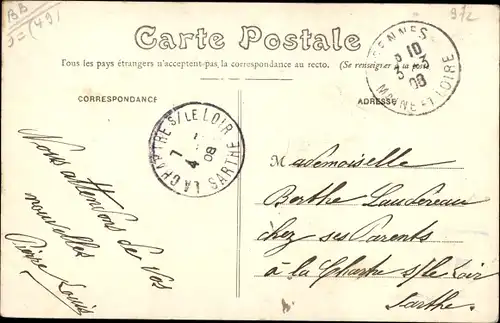 BB
972
Carte Postale
Tous les pays étrangers n'acceptent-pas, la correspondance au recto. (Se renseigner à la poste)
CORRESPONDANCE
ADRESSE
GENNES
10
3-3
08
MAINE-ET-LOIRE
LA CHARTRE S/LE LOIR
7
4
08
SARTHE
Nous attendons de vos
nouvelles
Pierre Louis
Mademoiselle
Berthe Laudereau
chez ses Parents
à la Chartre s/le Loir
Sarthe